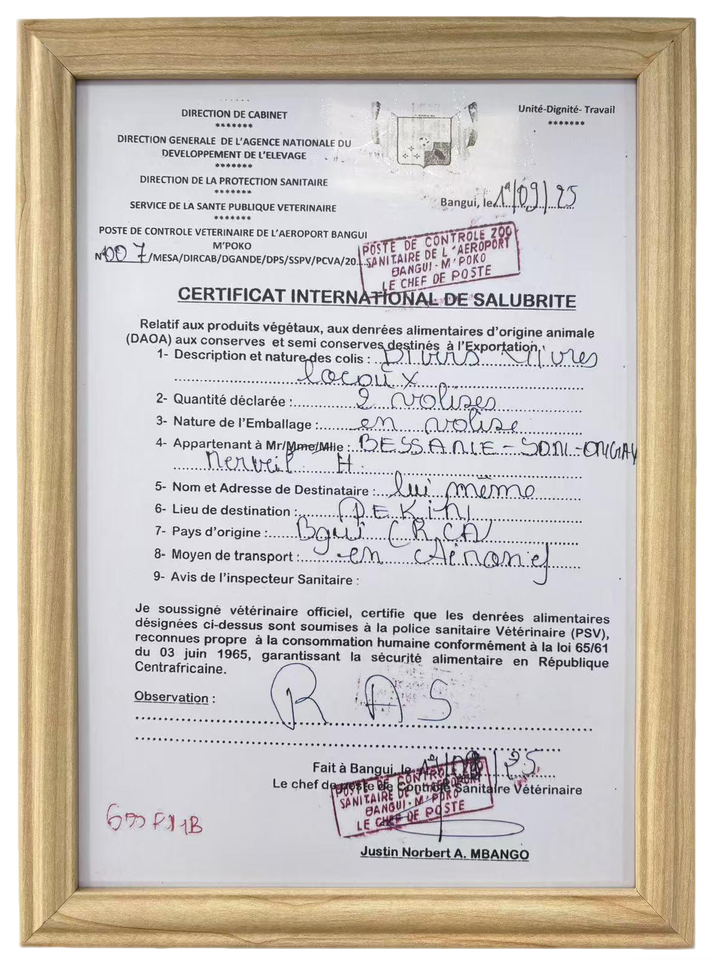 DIRECTION DE CABINET
*******
DIRECTION GENERALE DE L'AGENCE NATIONALE DU
DEVELOPPEMENT DE L'ELEVAGE
*******
DIRECTION DE LA PROTECTION SANITAIRE
*******
SERVICE DE LA SANTE PUBLIQUE VETERINAIRE
*******
POSTE DE CONTROLE VETERINAIRE DE L'AEROPORT BANGUI
M'POKO
N°007/MESA/DIRCAB/DGANDE/DPS/SSPV/PCVA/20
Unité-Dignité- Travail
*******
Bangui, le 19/09/25
POSTE DE CONTROLE ZOO
SANITAIRE DE L'AEROPORT
BANGUI-M'POKO
LE CHEF DE POSTE
CERTIFICAT INTERNATIONAL DE SALUBRITE
Relatif aux produits végétaux, aux denrées alimentaires d'origine animale
(DAOA) aux conserves et semi conserves destinés à l'Exportation
1- Description et nature des colis : Divers Vivres
locaux
2- Quantité déclarée : 2 valises
3- Nature de l'Emballage : en valise
4- Appartenant à Mr/Mme/Mlle : BESSANLE-SONI-ONGAY
Merveil H
5- Nom et Adresse de Destinataire : lui même
6- Lieu de destination : PEKIN
7- Pays d'origine : Bgui (RCA)
8- Moyen de transport : en Aéronef
9- Avis de l'inspecteur Sanitaire :
Je soussigné vétérinaire officiel, certifie que les denrées alimentaires
désignées ci-dessus sont soumises à la police sanitaire Vétérinaire (PSV),
reconnues propre à la consommation humaine conformément à la loi 65/61
du 03 juin 1965, garantissant la sécurité alimentaire en République
Centrafricaine.
Observation :
RAS
Fait à Bangui, le 19/09/25
Le chef de poste de Contrôle Sanitaire Vétérinaire
POSTE DE CONTROLE ZOO
SANITAIRE DE L'AEROPORT
BANGUI-M'POKO
LE CHEF DE POSTE
Justin Norbert A. MBANGO